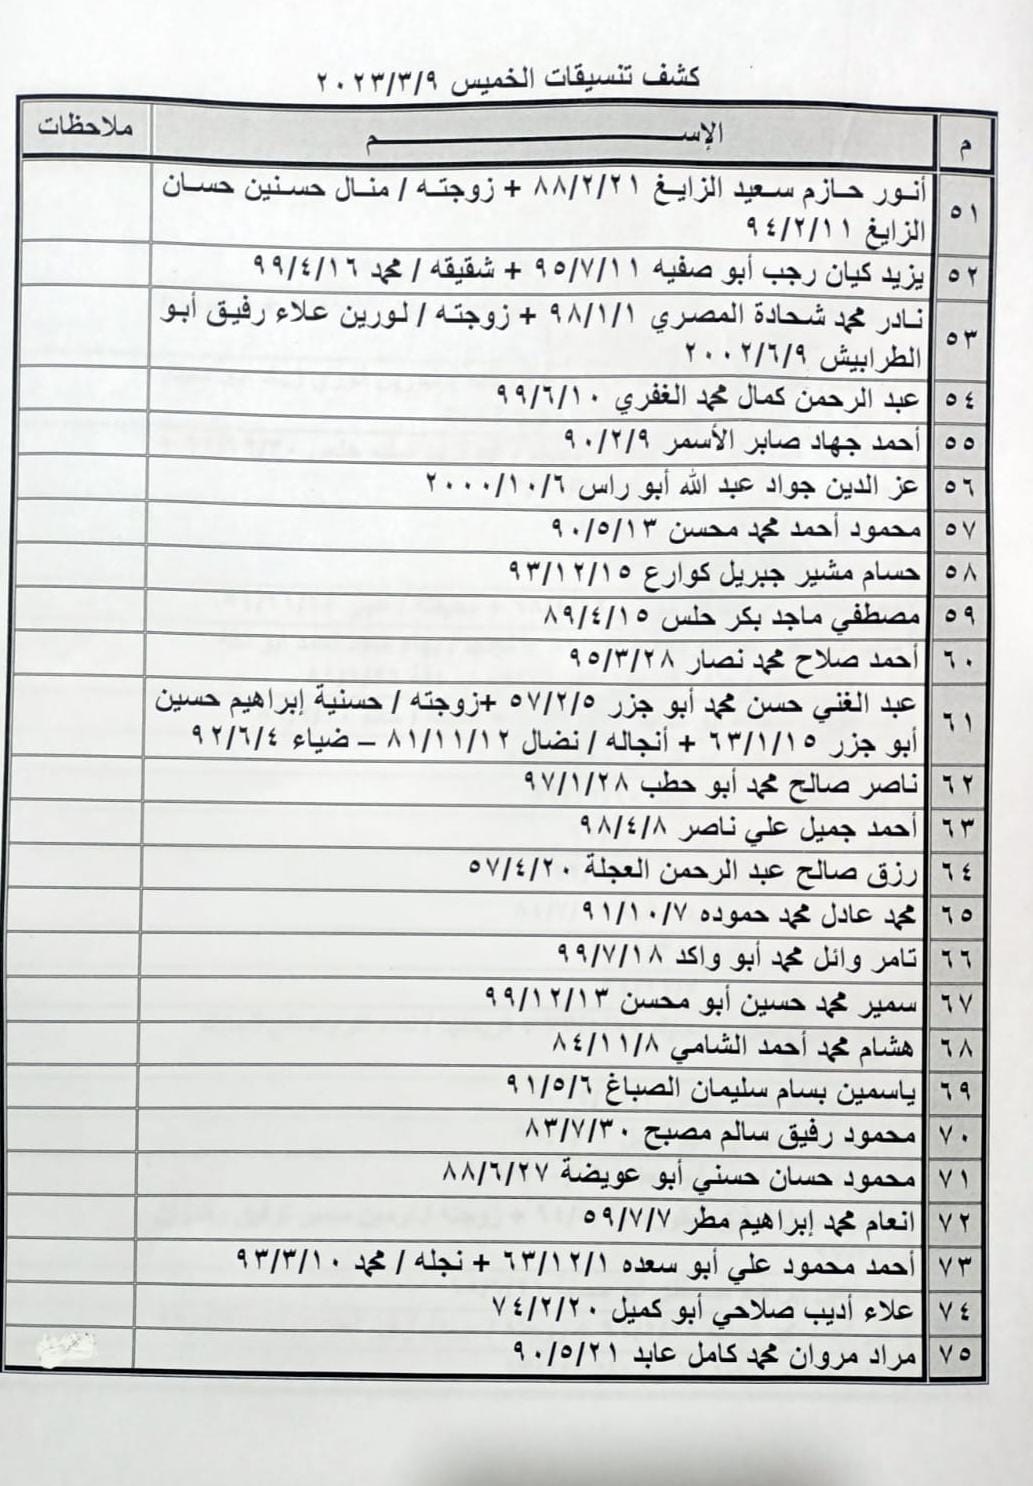 كشف تنسيقات الخميس ٢٠٢٣/٣/٩
م الإســـــــم ملاحظات
٥١ أنور حازم سعيد الزايغ ٨٨/٢/٢١ + زوجته / منال حسنين حسان
الزايغ ٩٤/٢/١١
٥٢ يزيد كيان رجب أبو صفيه ٩٥/٧/١١ + شقيقه / محمد ٩٩/٤/١٦
٥٣ نادر محمد شحادة المصري ٩٨/١/١ + زوجته / لورين علاء رفيق أبو
الطرابيش ٢٠٠٢/٦/٩
٥٤ عبد الرحمن كمال محمد الغفري ٩٩/٦/١٠
٥٥ أحمد جهاد صابر الأسمر ٩٠/٢/٩
٥٦ عز الدين جواد عبد الله أبو راس ٢٠٠٠/١٠/٦
٥٧ محمود أحمد محمد محسن ٩٠/٥/١٣
٥٨ حسام مشير جبريل كوارع ٩٣/١٢/١٥
٥٩ مصطفي ماجد بكر حلس ٨٩/٤/١٥
٦٠ أحمد صلاح محمد نصار ٩٥/٣/٢٨
٦١ عبد الغني حسن محمد أبو جزر ٥٧/٢/٥ +زوجته / حسنية إبراهيم حسين
أبو جزر ٦٣/١/١٥ + أنجاله / نضال ٨١/١١/١٢ – ضياء ٩٢/٦/٤
٦٢ ناصر صالح محمد أبو حطب ٩٧/١/٢٨
٦٣ أحمد جميل علي ناصر ٩٨/٤/٨
٦٤ رزق صالح عبد الرحمن العجلة ٥٧/٤/٢٠
٦٥ محمد عادل محمد حموده ٩١/١٠/٧
٦٦ تامر وائل محمد أبو واكد ٩٩/٧/١٨
٦٧ سمير محمد حسين أبو محسن ٩٩/١٢/١٣
٦٨ هشام محمد أحمد الشامي ٨٤/١١/٨
٦٩ ياسمين بسام سليمان الصباغ ٩١/٥/٦
٧٠ محمود رفيق سالم مصبح ٨٣/٧/٣٠
٧١ محمود حسان حسني أبو عويضة ٨٨/٦/٢٧
٧٢ انعام محمد إبراهيم مطر ٥٩/٧/٧
٧٣ أحمد محمود علي أبو سعده ٦٣/١٢/١ + نجله / محمد ٩٣/٣/١٠
٧٤ علاء أديب صلاحي أبو كميل ٧٤/٢/٢٠
٧٥ مراد مروان محمد كامل عابد ٩٠/٥/٢١